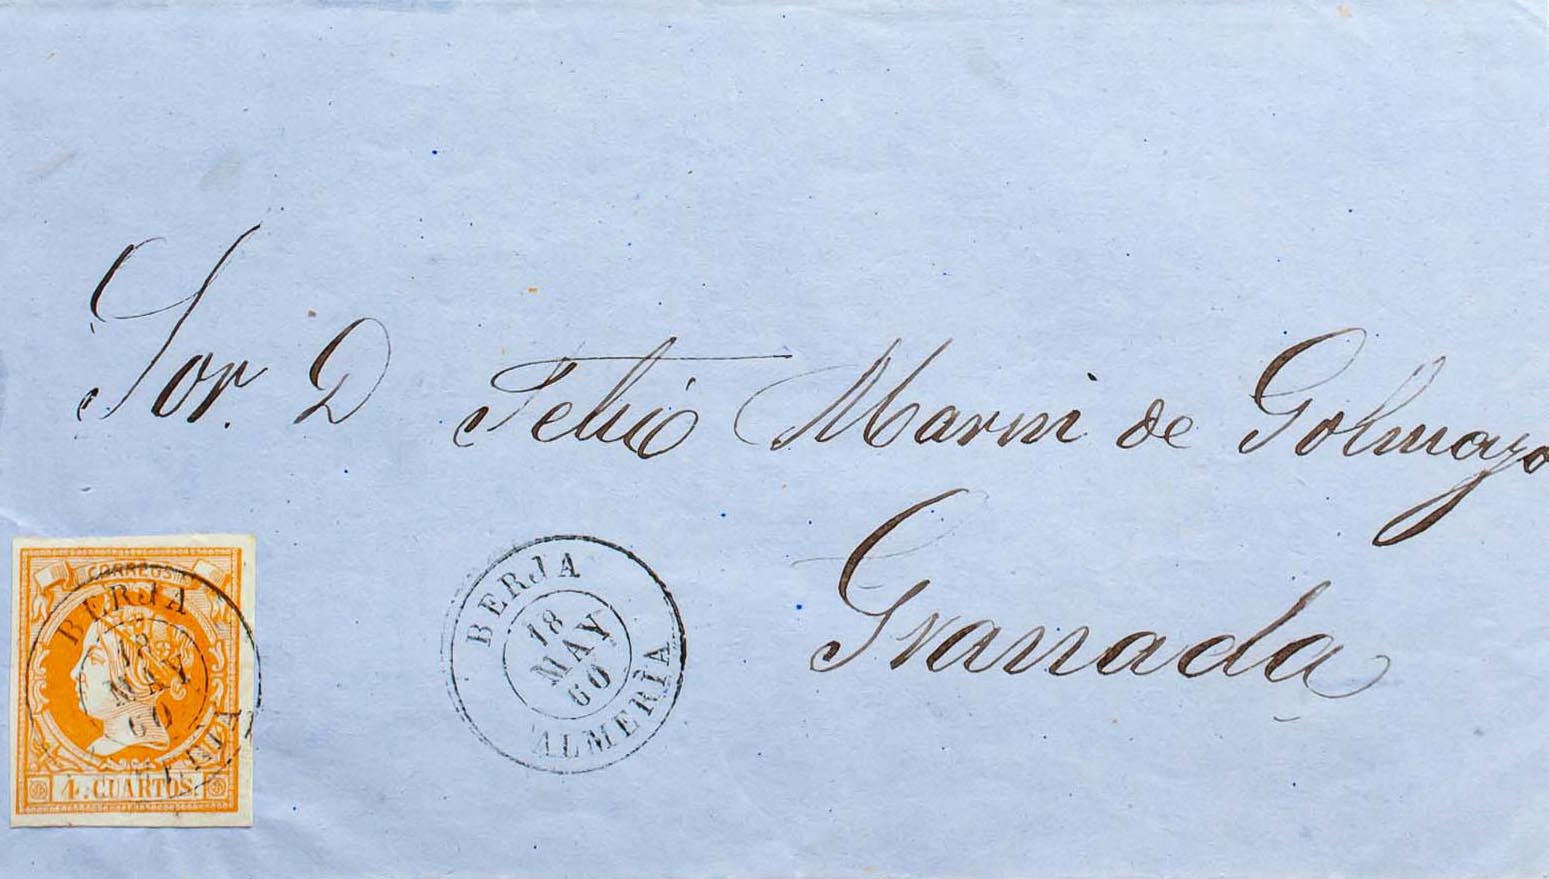 Sor. D Felix Marin de Golmayo
Granada
CORREOS
4. CUARTOS.
BERJA
18
MAY
60
BERJA
18
MAY
60
ALMERÍA